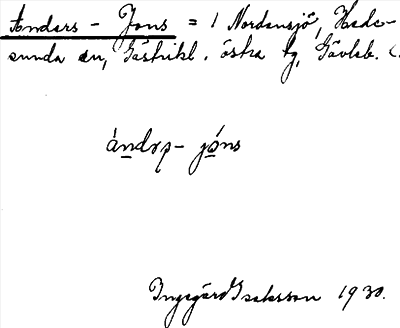 Anders - Jons = 1 Nordansjö, Hede-
sunda sn, Gästrikl. östra tg, Gävleb. l.
ándɔꞩ- jóns
Ingegärd Isaksson 1930.